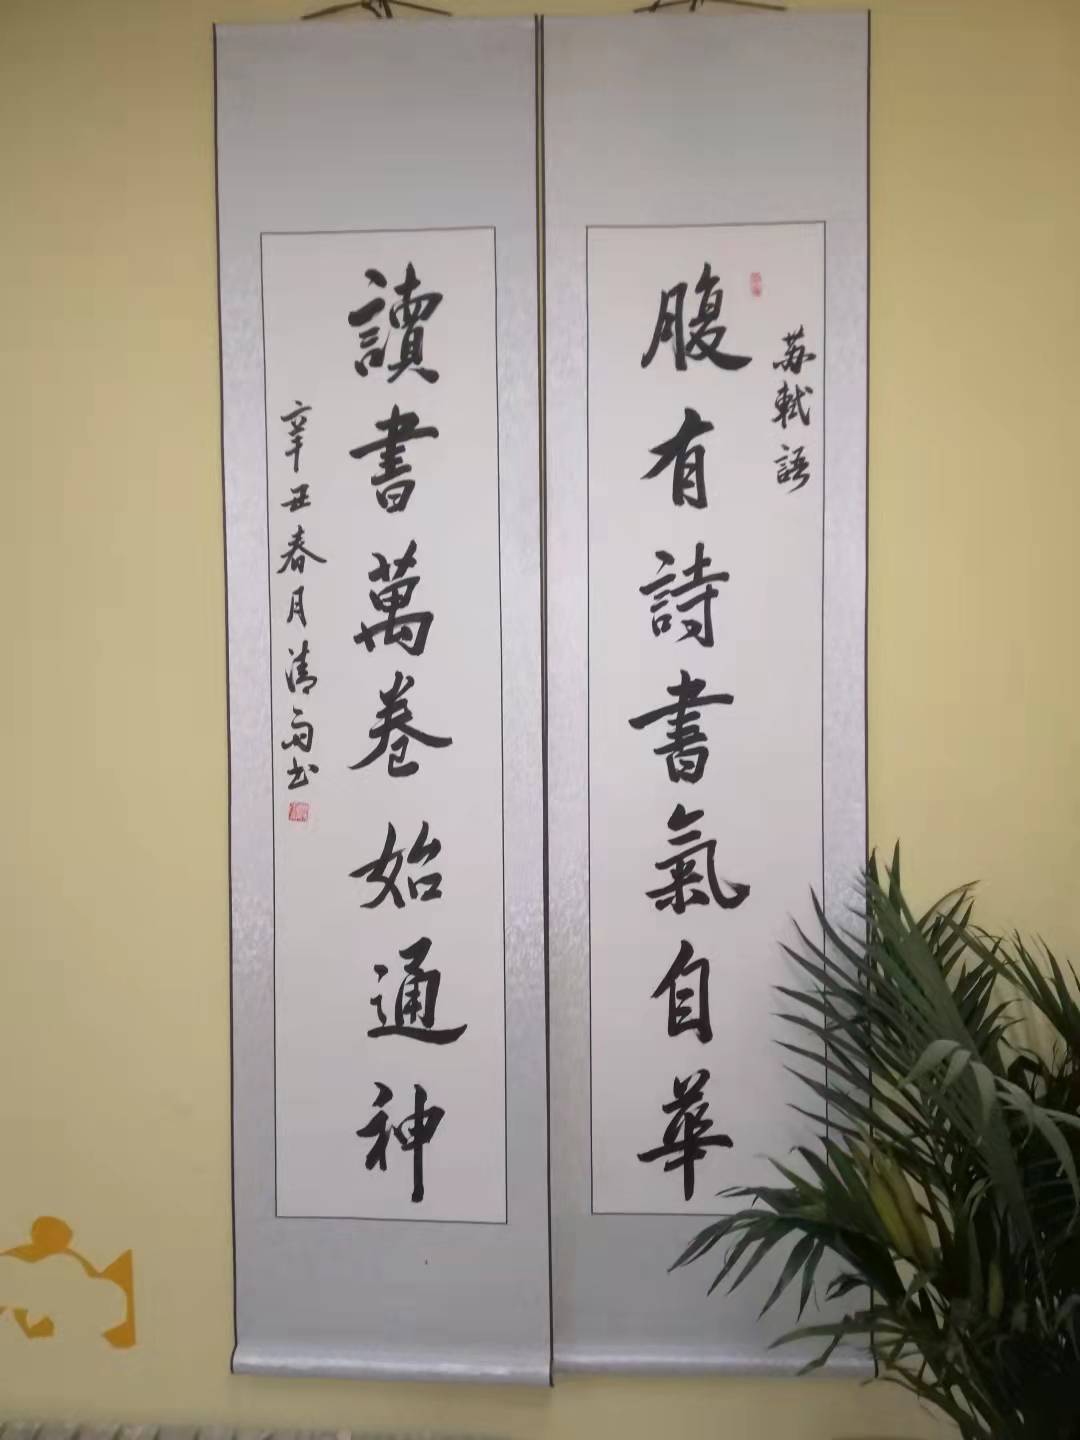 蘇軾語
腹有詩書氣自華
讀書萬卷始通神
辛丑春月清雨书